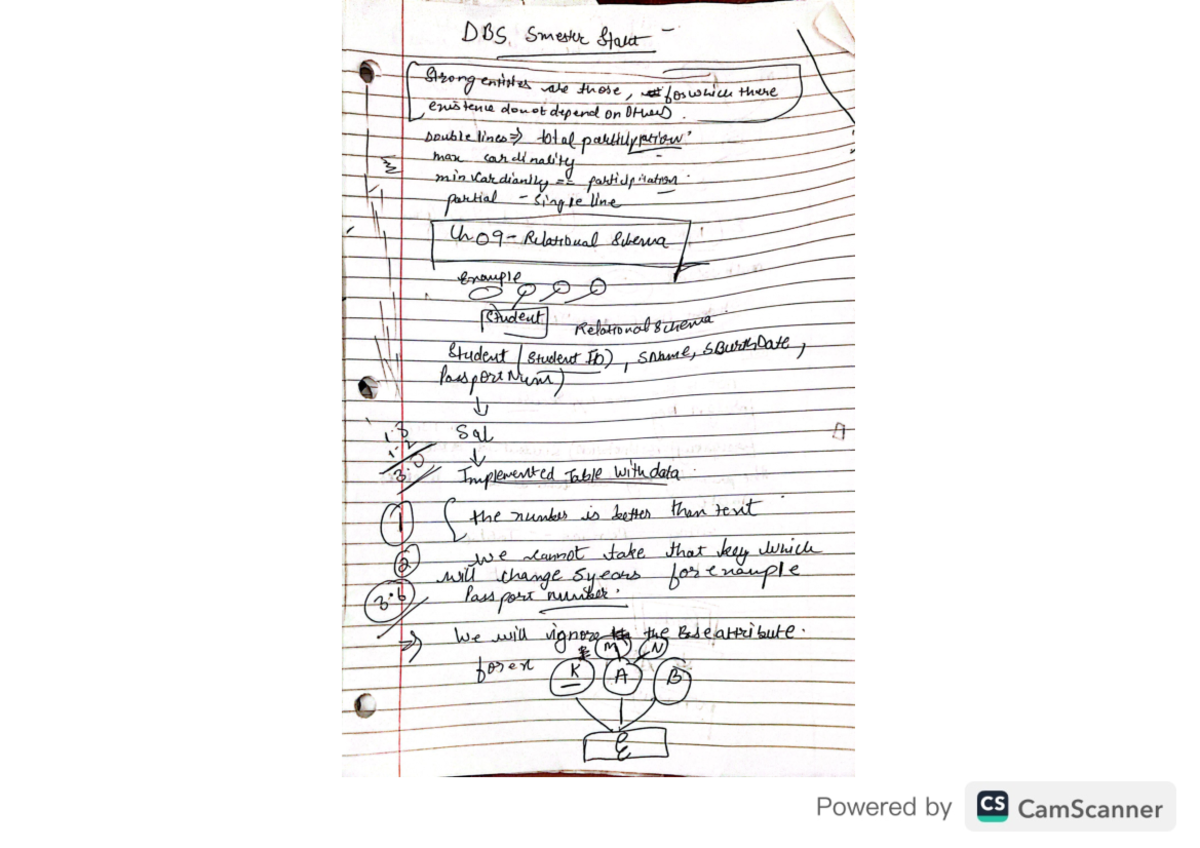 DBS Smester Start
Strong entities are those, for which there
existence donot depend on Others.
Double lines ⇒ total participation.
max cardinality
min Cardianlity == participation.
partial - single line
Ch 09 - Relational Schema
Example
Student
Relational Schema
Student (Student ID), SName, SBirthDate,
PassportNum)
↓
Sql
1.3
1.2
3.0
↓
Implemented Table with data.
1 the number is better than text
2 We cannot take that key which
will change 5years for example
3.6 Passport number.
⇒ We will ignore the Base attribute.
for ex
M N
K A B
E
Powered by CS CamScanner